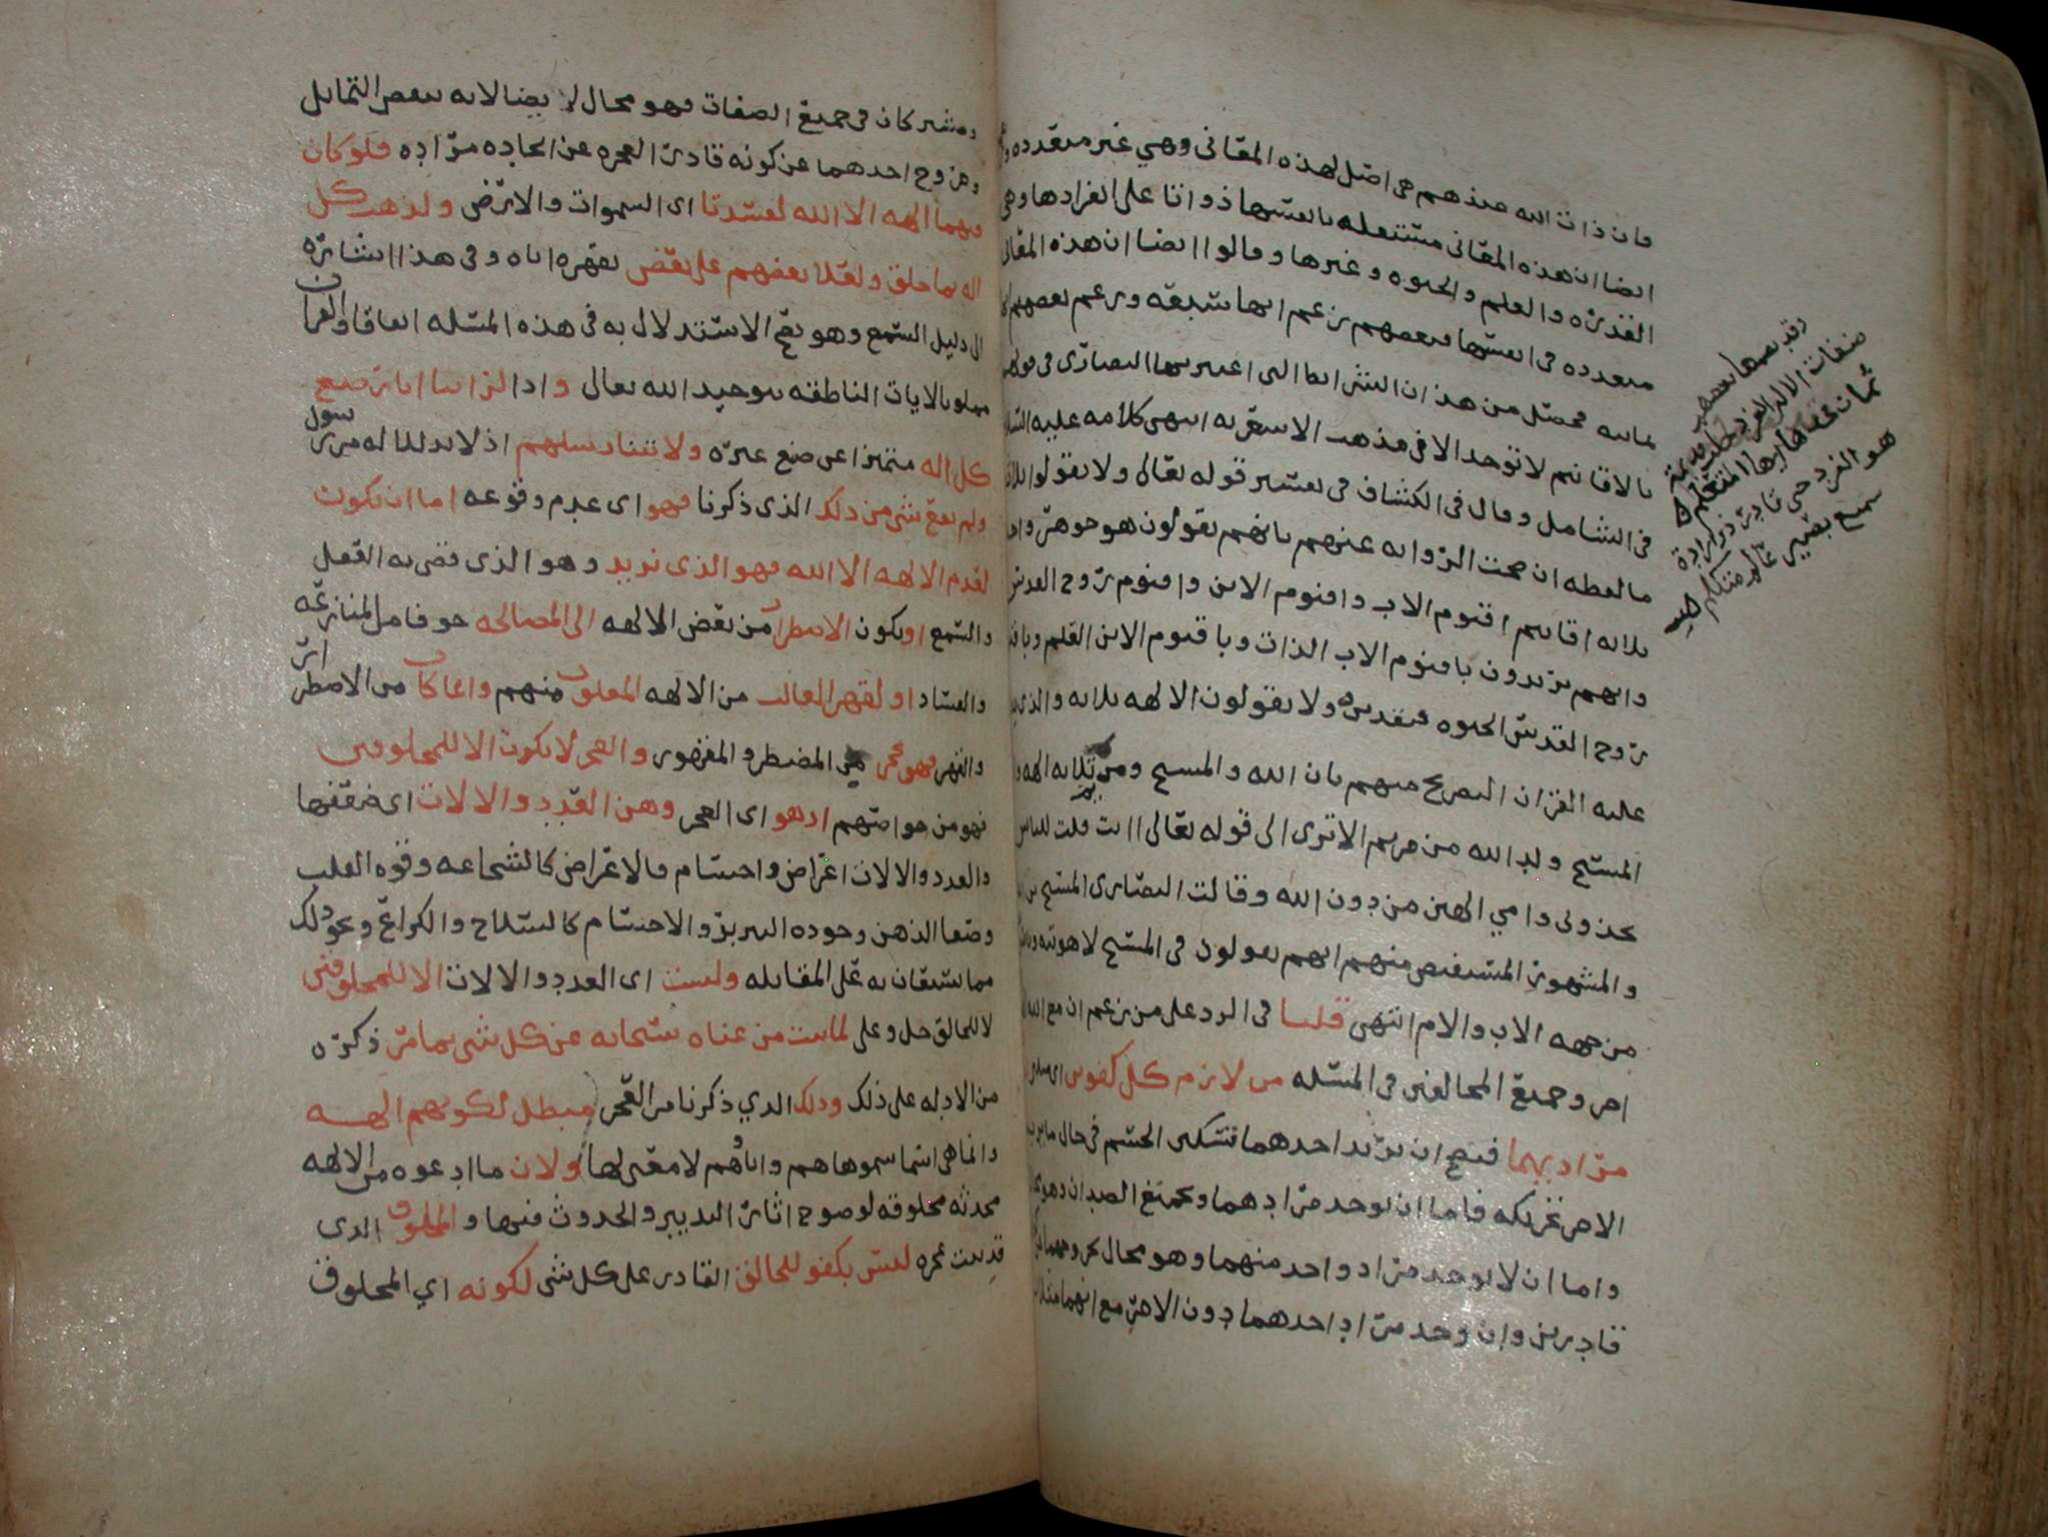 فان ذات الله عندهم هي اصل لهذه المعاني وهي غير متعدده
ايضا ان هذه المعاني مستقله بانفسها ذواتا على انفرادها وهي
القدره والعلم والحيوه وغيرها وقالوا ايضا ان هذه المعاني
متعدده في انفسها فبعضهم زعم انها سبعه وزعم بعضهم
ثمانيه فحصل من هذا ان الشرائط التي اعتبرتها النصارى في
بالاقانيم لا توجد الا في مذهب الاشعريه انتهى كلامه عليه السلام
في الشامل وقال في الكشاف في تفسير قوله تعالى ولا تقولوا ثلاثه
ما لفظه ان صحت الروايه عنهم بانهم يقولون هو جوهر واحد
ثلاثه اقانيم اقنوم الاب واقنوم الابن واقنوم روح القدس
وانهم يريدون باقنوم الاب الذات وباقنوم الابن العلم وباقنوم
روح القدس الحيوه فتقديره ولا تقولون الالهه ثلاثه والذي يدل
عليه القران التصريح منهم بان الله والمسيح ومريم ثلاثه الهه
المسيح ولد الله من مريم الا ترى الى قوله تعالى اانت قلت للناس
تخذوني وامي الهين من دون الله وقالت النصارى المسيح بن
والمشهور المستفيض منهم انهم يقولون في المسيح لاهوتيه
من جهه الاب والام انتهى قلنا في الرد على من زعم ان مع الله
اخر وجميع المخالفين في المسئله من لازم كل كفوين
مراديهما فيصح ان يريد احدهما تسكين الجسم في حال ما يريد
الاخر تحريكه فاما ان يوجد مرادهما ويجتمع الضدان وهو
واما ان لا يوجد مراد واحد منهما وهو محال
قادرين وان وجد مراد احدهما دون الاخر مع انهما مثلان
وقد نظمها بعضهم
صفات الاله الفرد جلت قديمة
ثمان قضاها المتعلم
هو الفرد حي قادر ذو ارادة
سميع بصير عالم متكلم
ومشتركان في جميع الصفات فهو محال لا ايضا لانه ينقص التماثل
وخروج احدهما عن كونه قادرا لعجزه عن ايجاده مراده فلو كان
فيهما الهه الا الله لفسدتا اى السموات والارض ولذهب كل
اله بما خلق ولعلا بعضهم على بعض بقهره اياه وفي هذا اشاره
الى دليل السمع وهو يصح الاستدلال به في هذه المسئله اتفاقا والقران
مملو بالايات الناطقه بتوحيد الله تعالى واذا لراينا اثار صنع
كل اله متميزا عن صنع غيره ولاتتنا رسلهم اذ لا بد للاله من رسول
ولم يقع شي من ذلك الذي ذكرنا فهو اى عدم وقوعه اما ان يكون
لعدم الالهه الا الله فهو الذي نريد وهو الذي قضى به العقل
والسمع او يكون الاضطراب من بعض الالهه الى المصالحه خوفا من المنازعه
والفساد او لقهر الغالب من الالهه المغلوب منهم واياما كان من الاضطرار
والقهر فهو عجز من المضطر والمقهور والعجز لا يكون الا للمخلوقين
فهو من خواصهم اذ هو اى العجز وهن العدد والالات اى ضعفها
والعدد والالات اعراض واجسام فالاعراض كالشجاعه وقوه القلب
وصفا الذهن وجوده التدبير والاجسام كالسلاح والكراع ونحو ذلك
مما يستعان به على المقابله وليست اى العدد والالات الا للمخلوقين
لا للخالق جل وعلى لما ثبت من غناه سبحانه عن كل شي بما مر ذكره
من الادله على ذلك وذلك الذي ذكرنا من العجز مبطل لكونهم الهه
وانما هي اسما سموها هم واباؤهم لا معنى لها ولان ما ادعوه من الالهه
محدثه مخلوقه لوضوح اثار التدبير والحدوث فيها والمخلوق الذي
قد ثبت عجزه ليس بكفو للخالق القادر على كل شي لكونه اي المخلوق